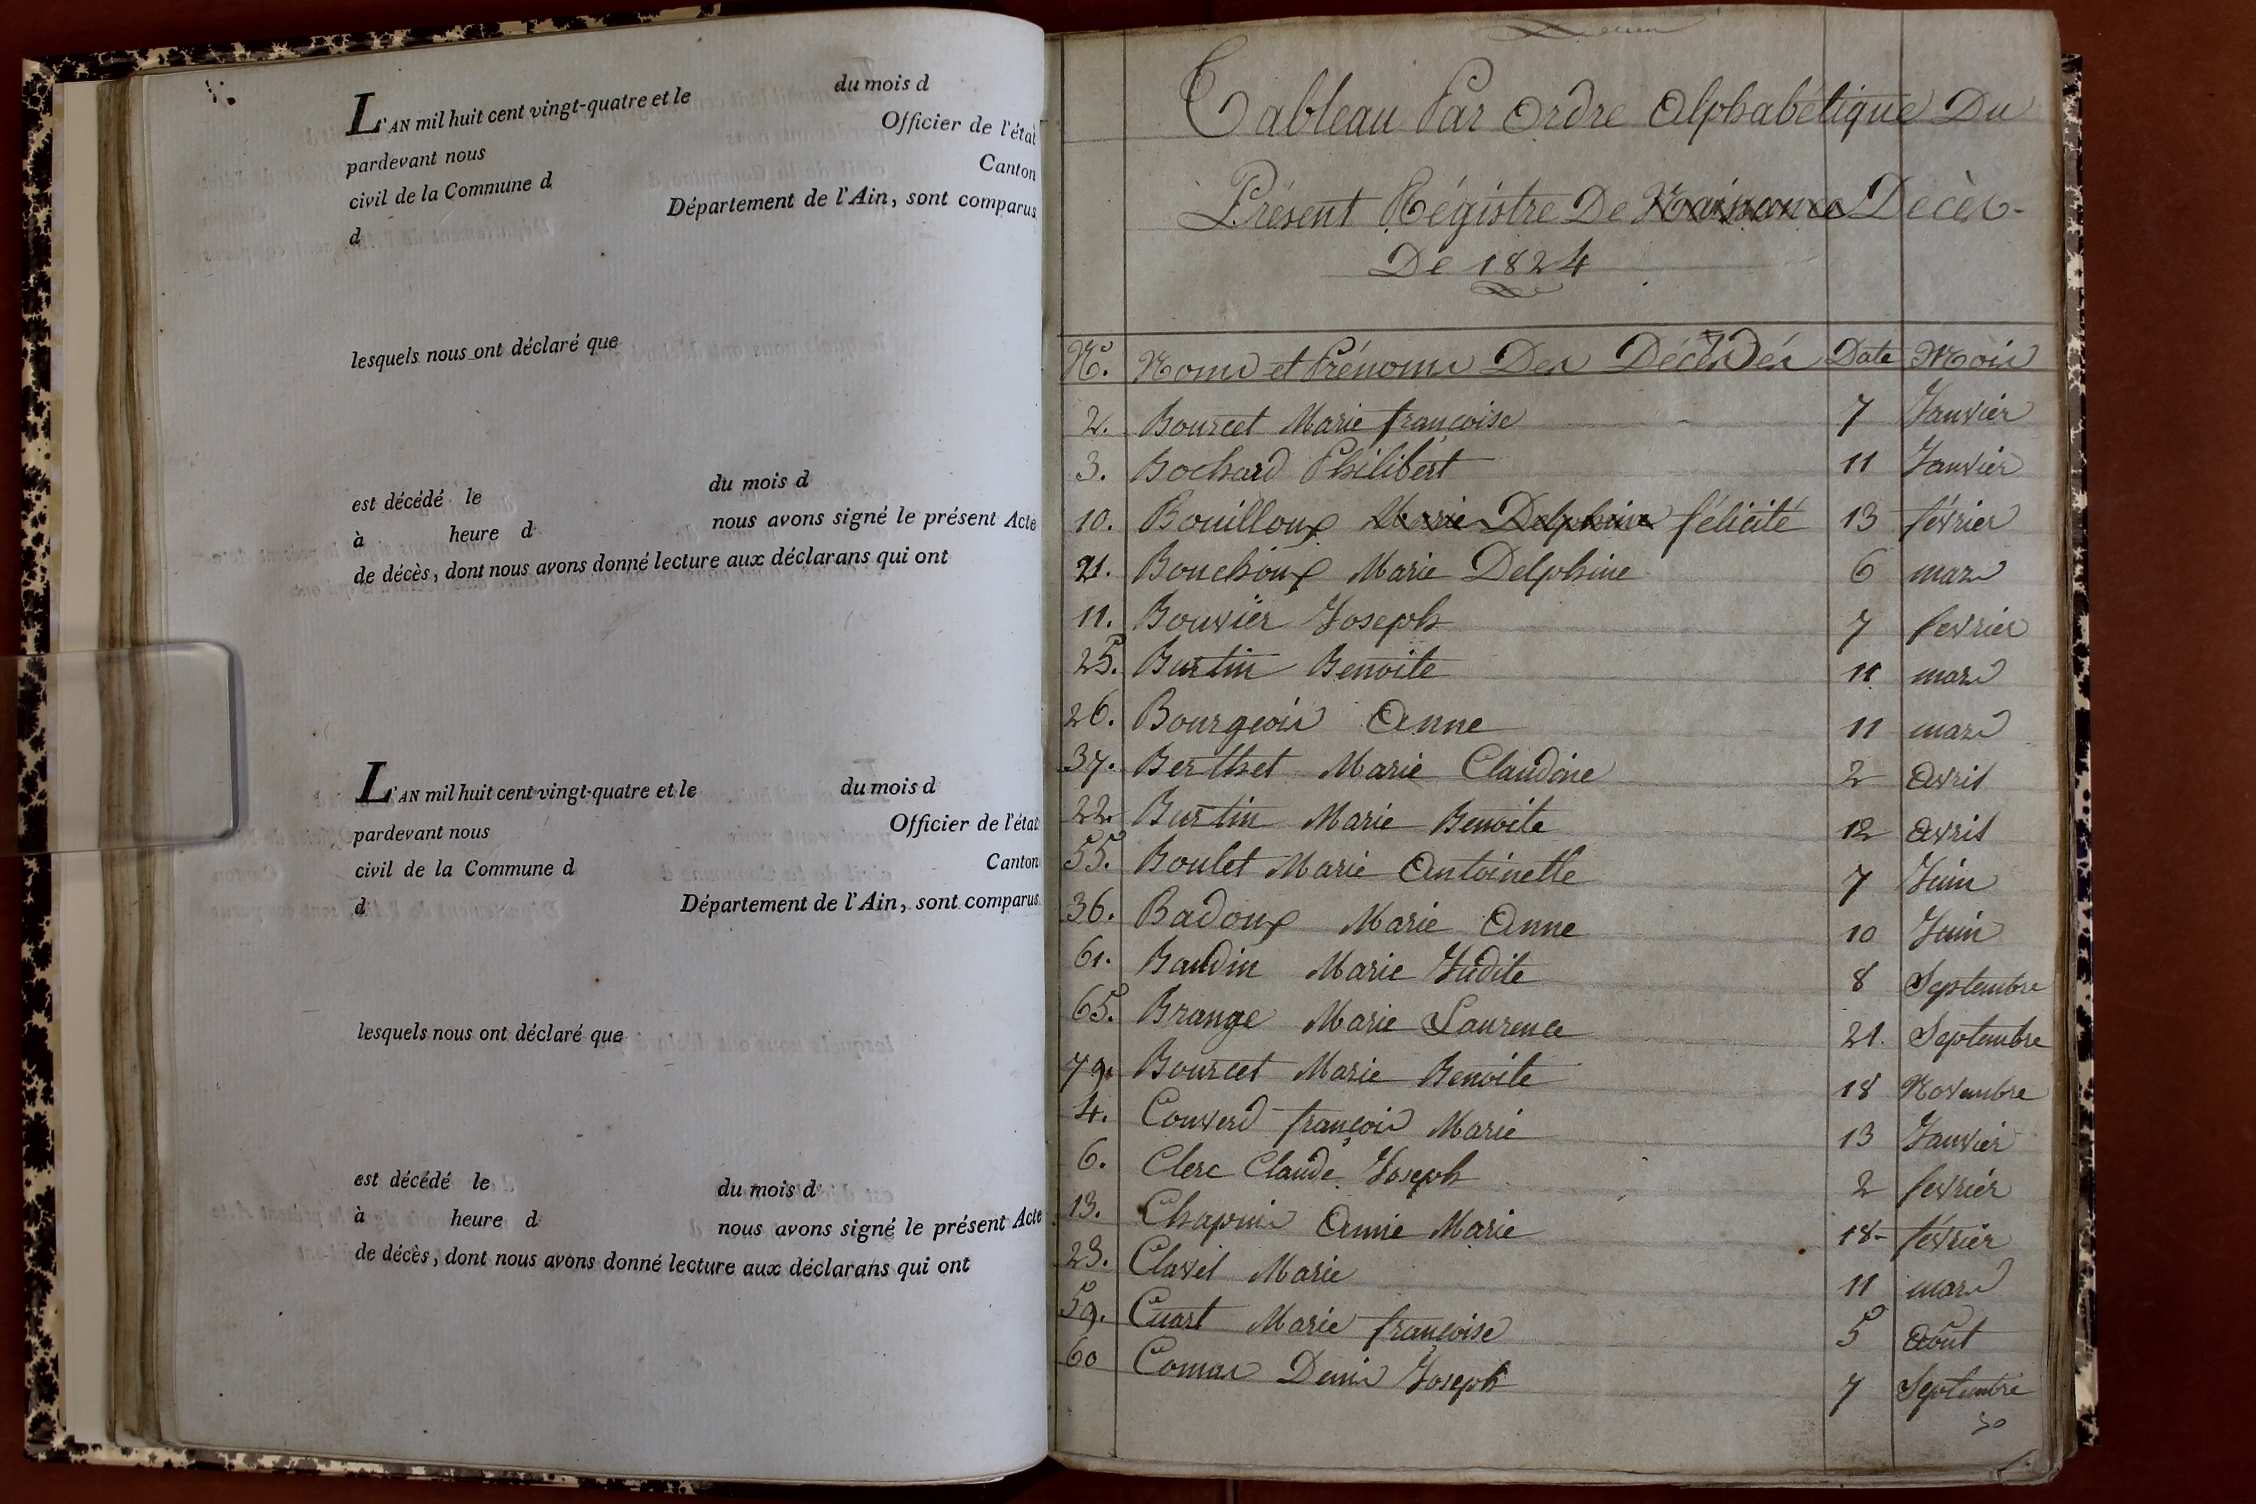 L'AN mil huit cent vingt-quatre et le du mois d
pardevant nous Officier de l'état
civil de la Commune d Canton
d Département de l'Ain, sont comparus
lesquels nous ont déclaré que
est décédé le du mois d
à heure d nous avons signé le présent Acte
de décès, dont nous avons donné lecture aux déclarans qui ont
L'AN mil huit cent vingt-quatre et le du mois d
pardevant nous Officier de l'état
civil de la Commune d Canton
d Département de l'Ain, sont comparus
lesquels nous ont déclaré que
est décédé le du mois d
à heure d nous avons signé le présent Acte
de décès, dont nous avons donné lecture aux déclarans qui ont
Tableau Par Ordre Alphabétique Du
Présent Régistre De Naissance Décès
De 1824
No. Noms et Prénoms Des Décédés Date Mois
2. Bourcet Marie françoise 7 Janvier
3. Bochard Philibert 11 Janvier
10. Bouilloux Marie Delphine félicité 13 février
21. Bouchoux Marie Delphine 6 mars
11. Bouvier Joseph 7 fevrier
25. Burtin Benoite 11 mars
26. Bourgeois Anne 11 mars
37. Berthet Marie Claudine 2 Avril
22. Burtin Marie Benoite 12 Avril
55. Boulet Marie Antoinette 7 Juin
36. Badoux Marie Anne 10 Juin
61. Baudin Marie Judite 8 Septembre
65. Brange Marie Laurence 21. Septembre
79. Bourcet Marie Benoite 18 Novembre
4. Converd françois Marie 13 Janvier
6. Clerc Claude Joseph 2 fevrier
13. Chapuis Anne Marie 18- février
23. Clavel Marie 11 mars
59. Cuart Marie françoise 5 Août
60 Comas Denis Joseph 7 Septembre